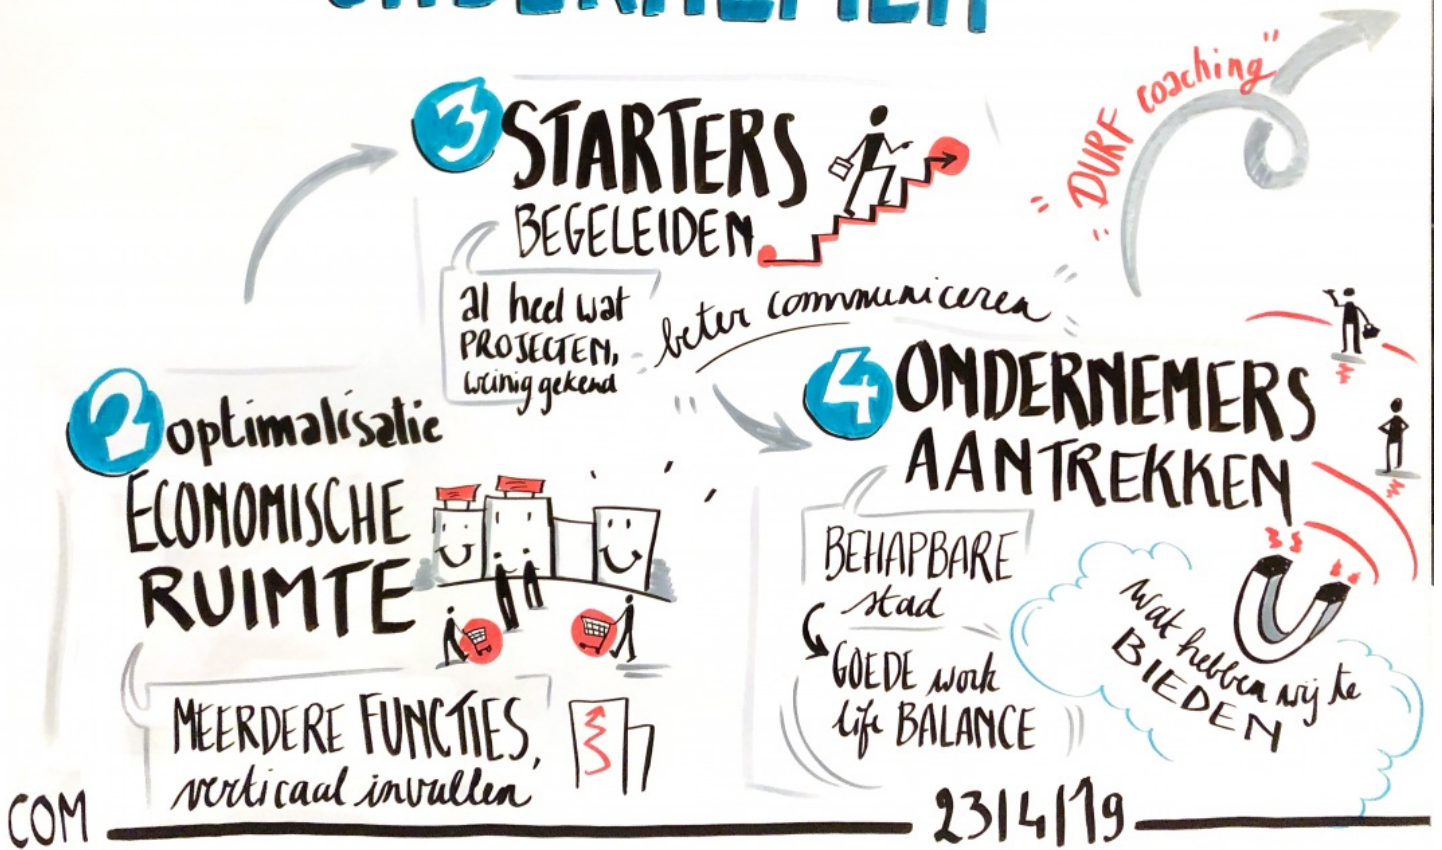 ONDERNEMEN
3 STARTERS
BEGELEIDEN
al heel wat
PROJECTEN,
weinig gekend
beter communiceren
"DURF coaching"
2 optimalisatie
ECONOMISCHE
RUIMTE
MEERDERE FUNCTIES,
verticaal invullen
4 ONDERNEMERS
AANTREKKEN
BEHAPBARE
stad
GOEDE work
life BALANCE
wat hebben wij te
BIEDEN
COM
23/4/19